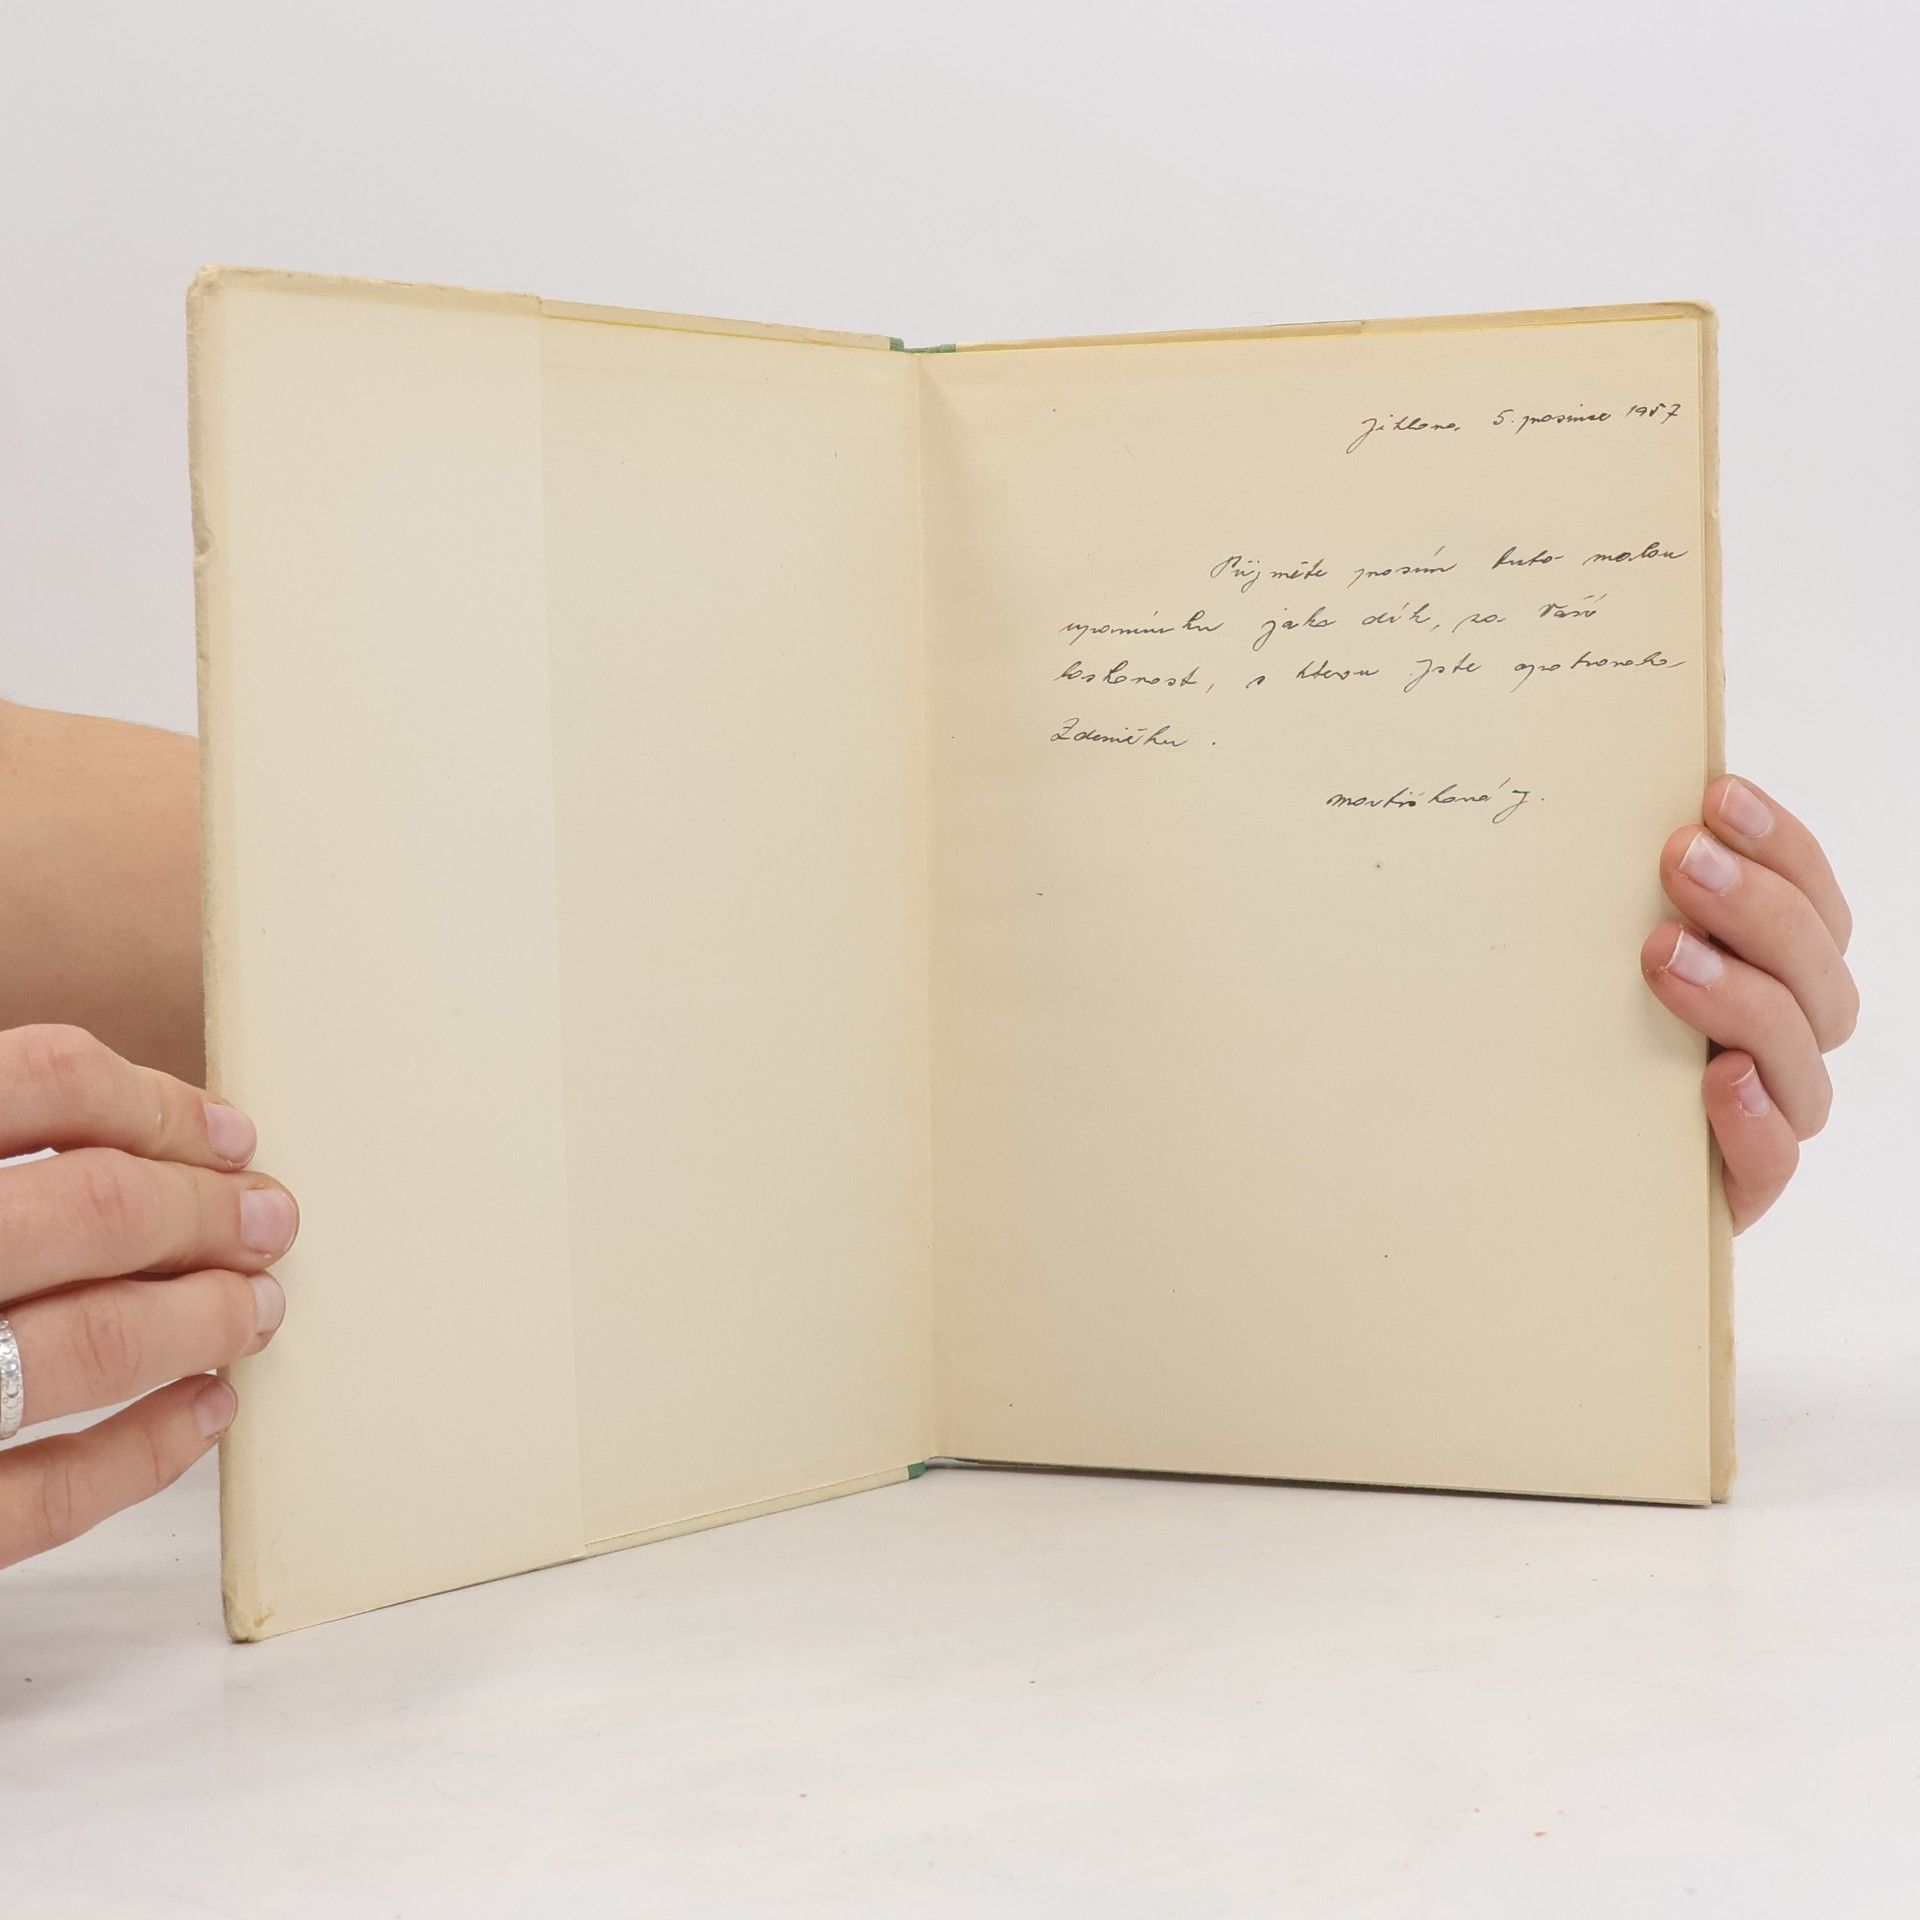 Jihlava, 5. prosince 1957
Přijměte prosím tuto malou
upomínku jako dík, za Vaši
laskavost, s kterou jste opatrovala
Zdeničku.
Martišková J.